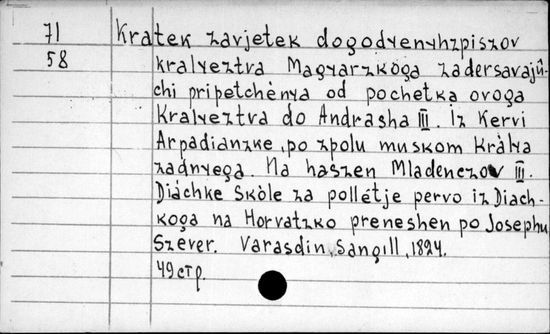 71 Kratek zavjetek dogodyenyhzpiszov
58 kralyeztva Magyarzkoga zadersavajŭ-
chi pripetchènya od pochetka ovoga
Kralyeztva do Andrasha III. Iz Kervi
Arpadianzke, po zpolu muskom Kràlya
zadnyega. Na haszen Mladenczov III.
Diáchke Skòle za polletje pervo iz Diach-
koga na Horvatzko preneshen po Josephu
Szever. Varasdin, Sangill, 1824.
49 стр.